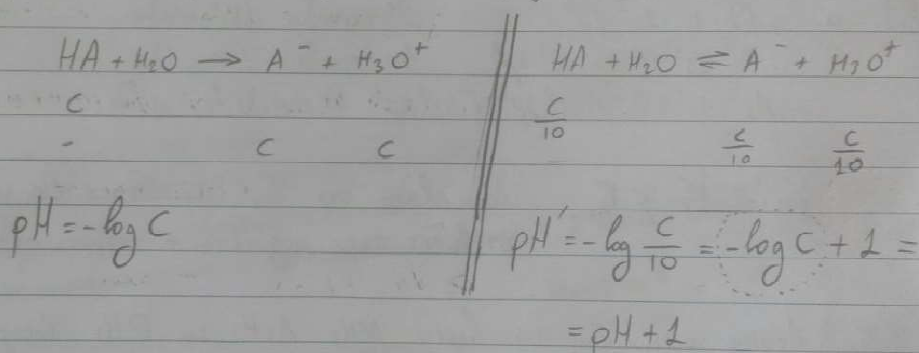 HA + H₂O → A⁻ + H₃O⁺
C
- C C
pH = -log C
HA + H₂O ⇌ A⁻ + H₃O⁺
C/10
C/10 C/10
pH' = -log C/10 = -log C + 1 =
= pH + 1